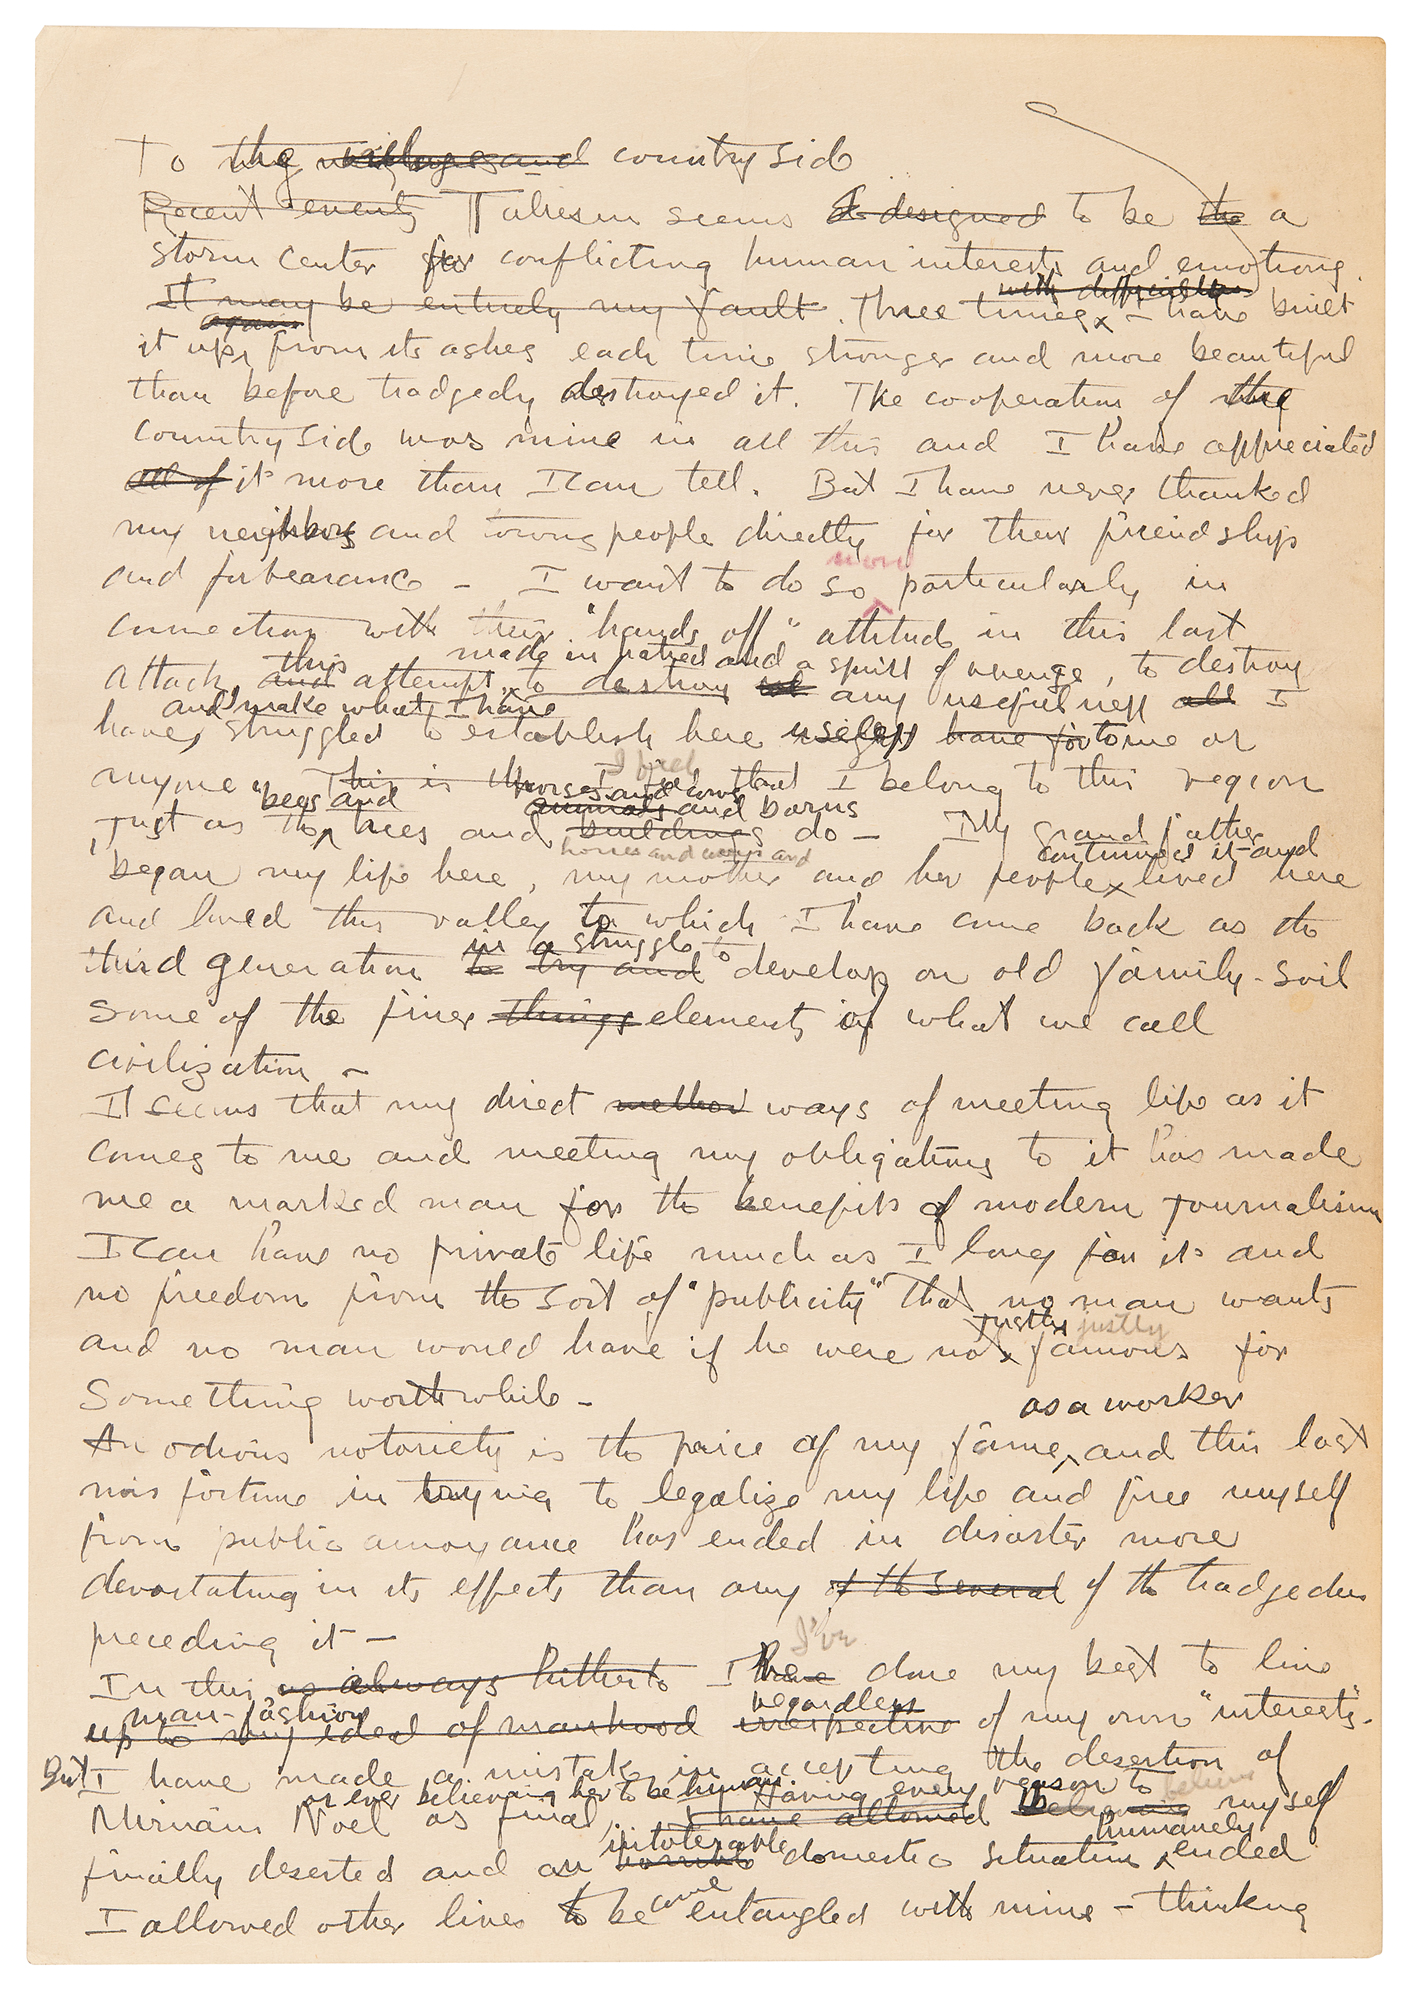 To the villages and countryside
Recent events Taliesin seems to designed to be the a
storm center for conflicting human interests and emotions.
with difficulty
It may be entirely my fault. Three times - have built
again
it up, from its ashes each time stronger and more beautiful
than before tradgedy destroyed it. The cooperation of the
countryside was mine in all this and I have appreciated
all of it more than I can tell. But I have never thanked
my neighbors and towns people directly for their friendship
more
and forbearance - I want to do so particularly in
connection with their "hands off" attitude in this last
this made in hatred and a spirit of revenge, to destroy
attack, and attempt, to destroy any usefulness all I
and make what I have
have struggled to establish here useless have for to me or
I feel
anyone. This is I feel that I belong to this region
bees and horses and cows
animals and barns
just as the trees and buildings do - My grandfather
horses and cows and
continued it and
began my life here, my mother and her people, lived here
and loved this valley to which I have come back as the
in a struggle to
third generation to try and develop on old family-soil
some of the finer things elements of what we call
civilization -
It seems that my direct method ways of meeting life as it
comes to me and meeting my obligations to it has made
me a marked man for the benefits of modern journalism
I can have no private life much as I long for it and
no freedom from the sort of "publicity" that no man wants
justly justly
and no man would have if he were not famous for
something worthwhile -
as a worker
An odious notoriety is the price of my fame, and this last
misfortune in trying to legalize my life and free myself
from public annoyance has ended in disaster more
devastating in its effects than any of the several of the tradgedies
preceding it -
I've
In this as always hitherto I have done my best to live
man-fashion regardless
up to my ideal of manhood irrespective of my own "interests".
But I have made a mistake in accepting the desertion of
or ever believing her to be human. Having every reason to believe
Miriam Noel as final, I have allowed believing myself
intolerable humanely
finally deserted and an horrible domestic situation, ended
come
I allowed other lives to be entangled with mine - thinking